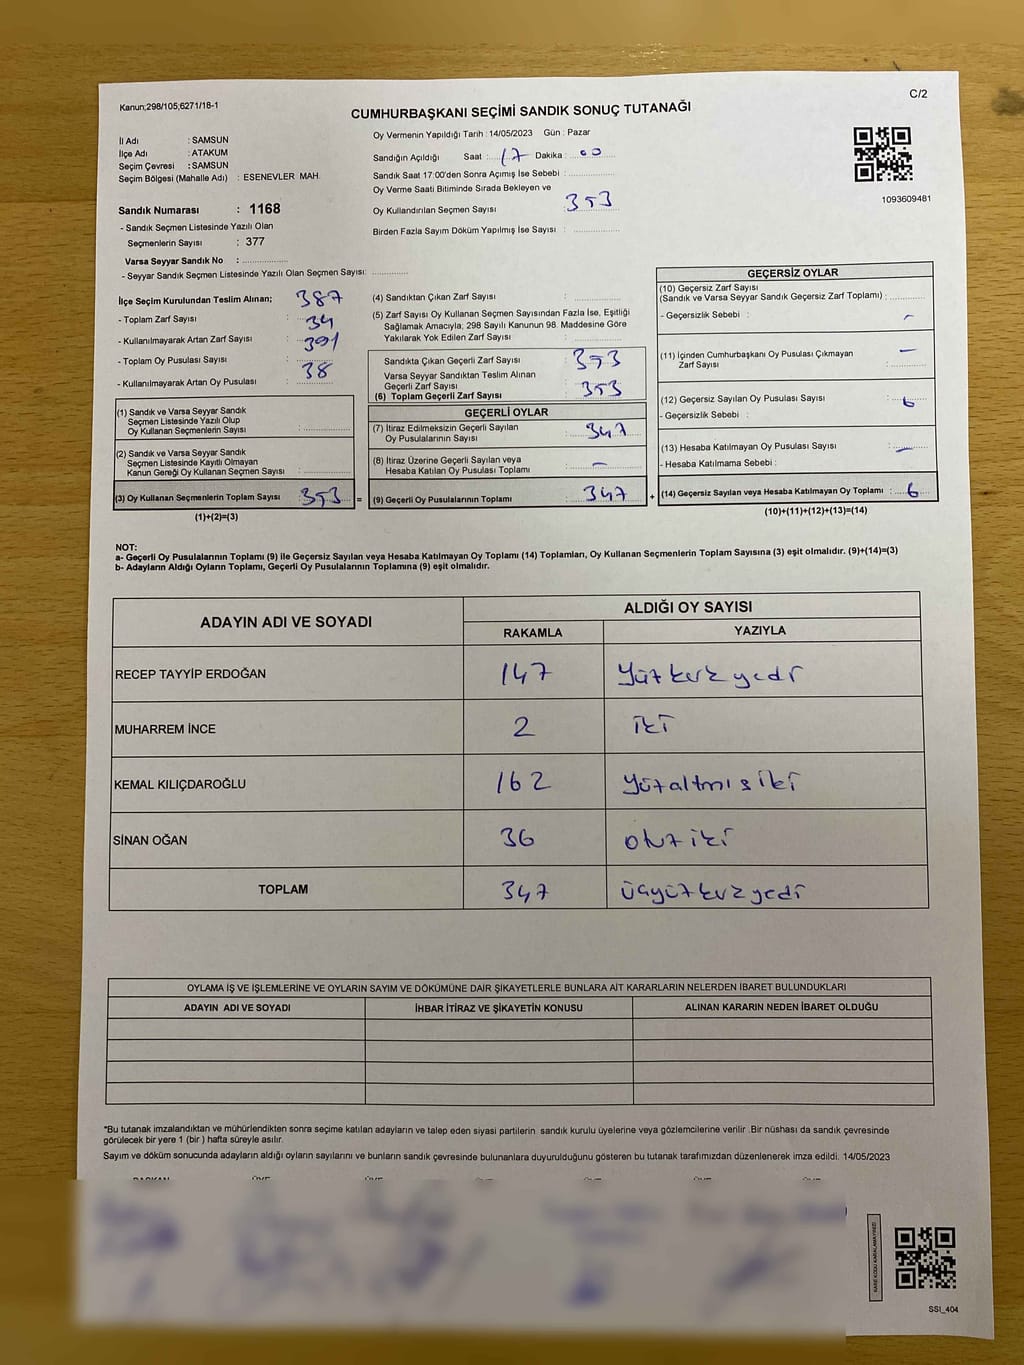 Kanun;298/105;6271/18-1
C/2
CUMHURBAŞKANI SEÇİMİ SANDIK SONUÇ TUTANAĞI
İl Adı : SAMSUN
İlçe Adı : ATAKUM
Seçim Çevresi : SAMSUN
Seçim Bölgesi (Mahalle Adı) : ESENEVLER MAH.
Sandık Numarası : 1168
- Sandık Seçmen Listesinde Yazılı Olan
Seçmenlerin Sayısı : 377
Varsa Seyyar Sandık No :
- Seyyar Sandık Seçmen Listesinde Yazılı Olan Seçmen Sayısı:
Oy Vermenin Yapıldığı Tarih : 14/05/2023 Gün : Pazar
Sandığın Açıldığı Saat : 17 Dakika : 00
Sandık Saat 17:00'den Sonra Açımış İse Sebebi :
Oy Verme Saati Bitiminde Sırada Bekleyen ve
Oy Kullandırılan Seçmen Sayısı : 353
Birden Fazla Sayım Döküm Yapılmış İse Sayısı :
1093609481
İlçe Seçim Kurulundan Teslim Alınan;
- Toplam Zarf Sayısı : 387
- Kullanılmayarak Artan Zarf Sayısı : 34
- Toplam Oy Pusulası Sayısı : 391
- Kullanılmayarak Artan Oy Pusulası : 38
(1) Sandık ve Varsa Seyyar Sandık
Seçmen Listesinde Yazılı Olup
Oy Kullanan Seçmenlerin Sayısı :
(2) Sandık ve Varsa Seyyar Sandık
Seçmen Listesinde Kayıtlı Olmayan
Kanun Gereği Oy Kullanan Seçmen Sayısı :
(3) Oy Kullanan Seçmenlerin Toplam Sayısı : 353 =
(1)+(2)=(3)
(4) Sandıktan Çıkan Zarf Sayısı :
(5) Zarf Sayısı Oy Kullanan Seçmen Sayısından Fazla İse, Eşitliği
Sağlamak Amacıyla; 298 Sayılı Kanunun 98. Maddesine Göre
Yakılarak Yok Edilen Zarf Sayısı :
Sandıkta Çıkan Geçerli Zarf Sayısı : 353
Varsa Seyyar Sandıktan Teslim Alınan
Geçerli Zarf Sayısı :
(6) Toplam Geçerli Zarf Sayısı : 353
GEÇERLİ OYLAR
(7) İtiraz Edilmeksizin Geçerli Sayılan
Oy Pusulalarının Sayısı : 347
(8) İtiraz Üzerine Geçerli Sayılan veya
Hesaba Katılan Oy Pusulası Toplamı : —
(9) Geçerli Oy Pusulalarının Toplamı : 347 +
GEÇERSİZ OYLAR
(10) Geçersiz Zarf Sayısı
(Sandık ve Varsa Seyyar Sandık Geçersiz Zarf Toplamı) :
- Geçersizlik Sebebi : —
(11) İçinden Cumhurbaşkanı Oy Pusulası Çıkmayan
Zarf Sayısı : —
(12) Geçersiz Sayılan Oy Pusulası Sayısı : 6
- Geçersizlik Sebebi :
(13) Hesaba Katılmayan Oy Pusulası Sayısı : —
- Hesaba Katılmama Sebebi :
(14) Geçersiz Sayılan veya Hesaba Katılmayan Oy Toplamı : 6
(10)+(11)+(12)+(13)=(14)
NOT:
a- Geçerli Oy Pusulalarının Toplamı (9) ile Geçersiz Sayılan veya Hesaba Katılmayan Oy Toplamı (14) Toplamları, Oy Kullanan Seçmenlerin Toplam Sayısına (3) eşit olmalıdır. (9)+(14)=(3)
b- Adayların Aldığı Oyların Toplamı, Geçerli Oy Pusulalarının Toplamına (9) eşit olmalıdır.
ADAYIN ADI VE SOYADI ALDIĞI OY SAYISI
RAKAMLA YAZIYLA
RECEP TAYYİP ERDOĞAN 147 Yüzkırk yedi
MUHARREM İNCE 2 iki
KEMAL KILIÇDAROĞLU 162 Yüzaltmışiki
SİNAN OĞAN 36 otuziki
TOPLAM 347 üçyüzkırkyedi
OYLAMA İŞ VE İŞLEMLERİNE VE OYLARIN SAYIM VE DÖKÜMÜNE DAİR ŞİKAYETLERLE BUNLARA AİT KARARLARIN NELERDEN İBARET BULUNDUKLARI
ADAYIN ADI VE SOYADI İHBAR İTİRAZ VE ŞİKAYETİN KONUSU ALINAN KARARIN NEDEN İBARET OLDUĞU
*Bu tutanak imzalandıktan ve mühürlendikten sonra seçime katılan adayların ve talep eden siyasi partilerin sandık kurulu üyelerine veya gözlemcilerine verilir .Bir nüshası da sandık çevresinde
görülecek bir yere 1 (bir ) hafta süreyle asılır.
Sayım ve döküm sonucunda adayların aldığı oyların sayılarını ve bunların sandık çevresinde bulunanlara duyurulduğunu gösteren bu tutanak tarafımızdan düzenlenerek imza edildi. 14/05/2023
SSI_404